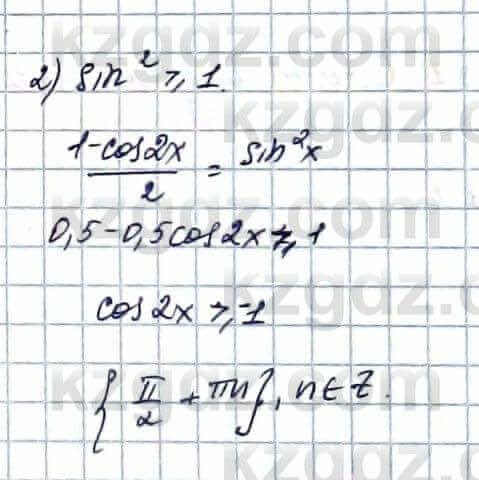 2) sin² ⩾ 1.
(1-cos2x)/2 = sin²x
0,5-0,5cos2x ⩾ 1
cos2x ⩾ -1
{π/2 + πn}, n∈Z.
kzgdz.com